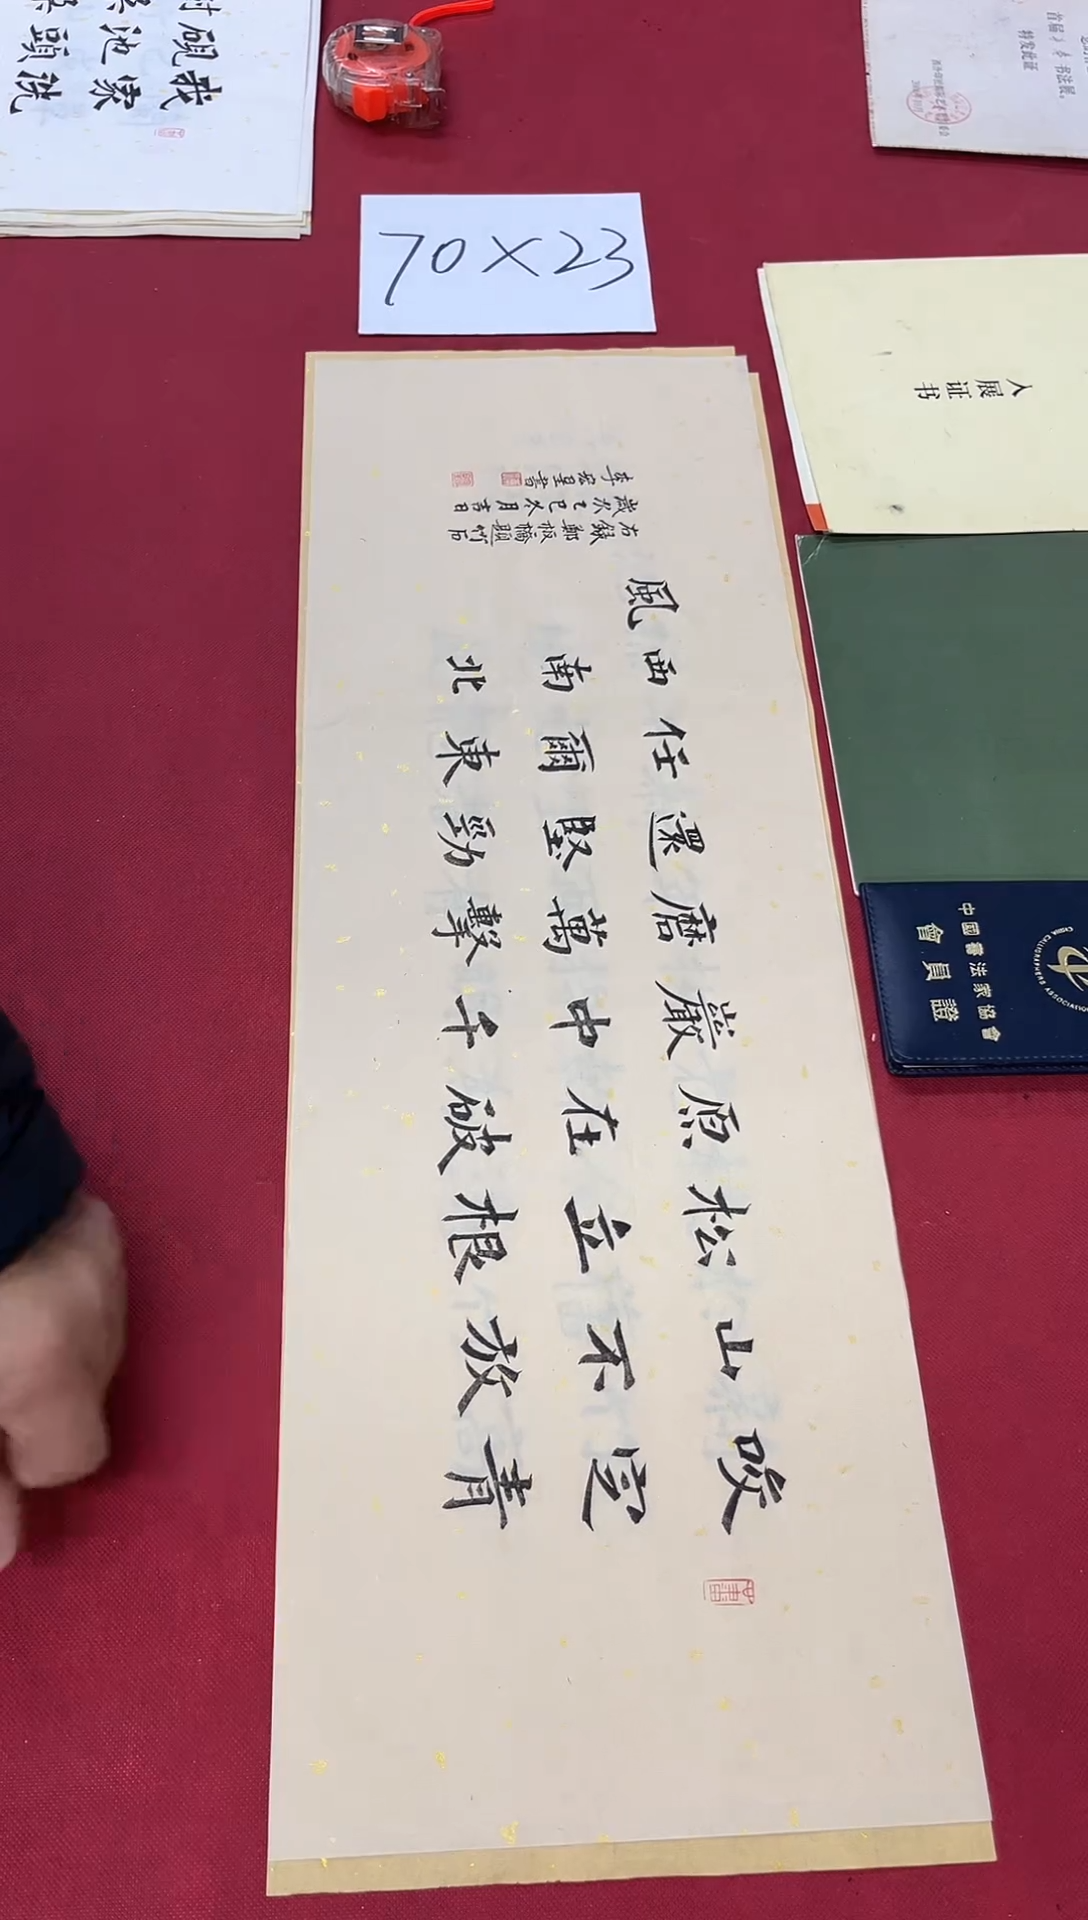 我家洗
硯池頭
70×23
咬定青
山不放
松立根
原在破
巖中千
磨萬擊
還堅勁
任爾東
西南北
風
右錄鄭板橋題竹石
歲次乙巳冬月吉日
李宏星書
特发此证
入展证书
中國書法家協會
會員證
CHINA CALLIGRAPHERS ASSOCIATION